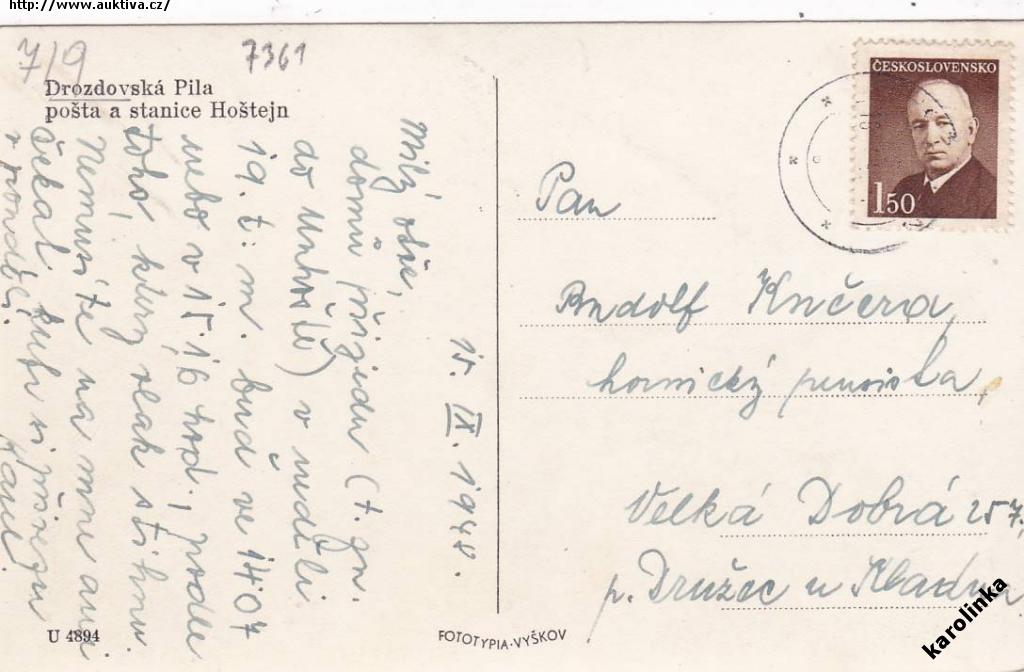 http://www.auktiva.cz/
7/9
7361
Drozdovská Pila
pošta a stanice Hoštejn
15. IX. 1948.
Milý otče,
domů přijedu (t. zn.
do Unhoště) v neděli
19. t. m. buď ve 1407
nebo v 15.16 hod., podle
toho, který vlak stihnu.
Nemusíte na mne ani
čekat,
v pondělí.
ČESKOSLOVENSKO
1.50
Pan
Rudolf Kučera,
hornický pensista,
Velká Dobrá 257,
p. Družec u Kladna
U 4894
FOTOTYPIA-VYŠKOV
karolinka